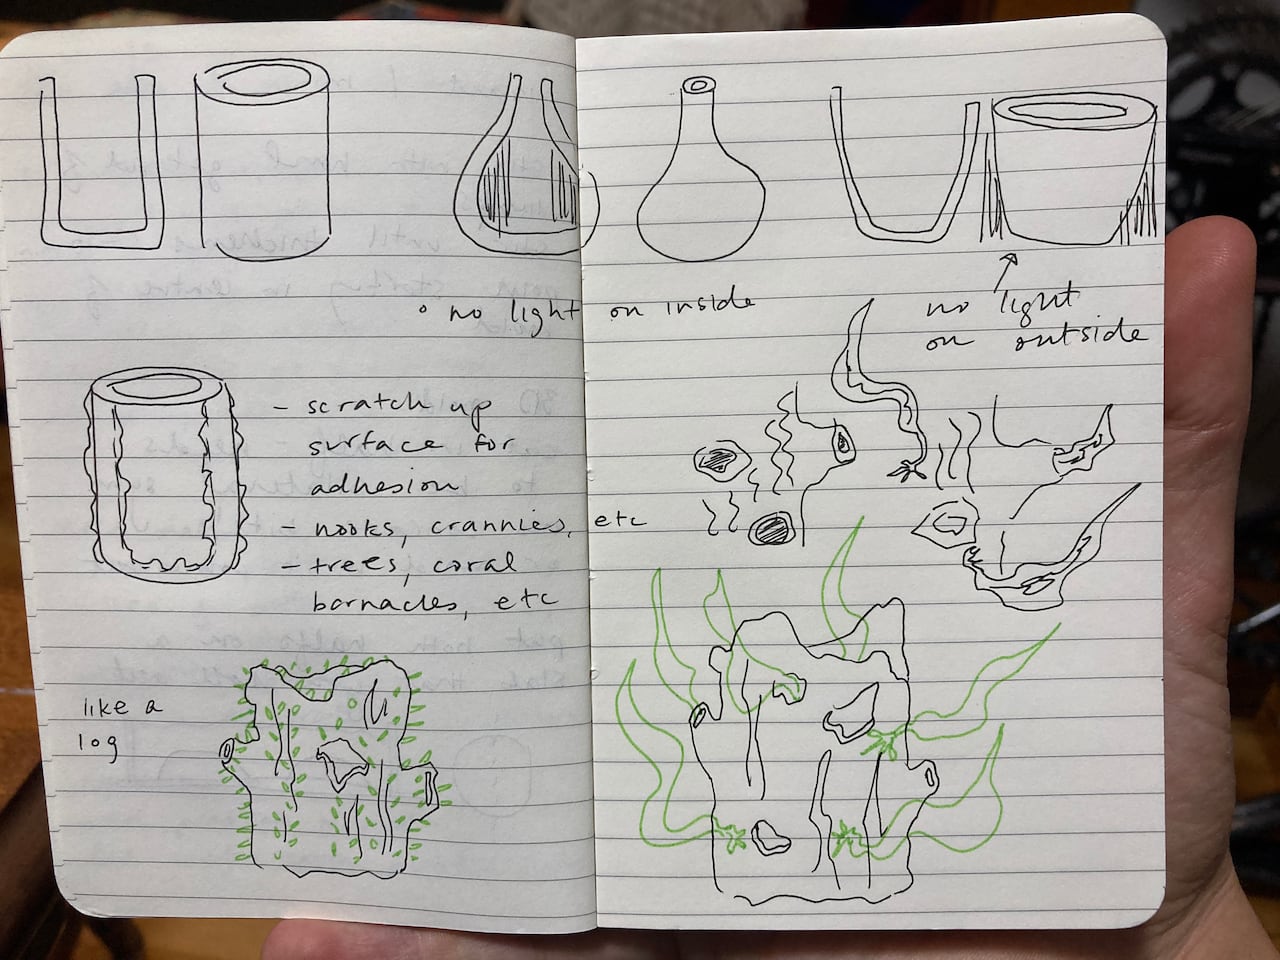 • no light on inside
no light
on outside
- scratch up
surface for
adhesion
- nooks, crannies, etc
- trees, coral
barnacles, etc
like a
log